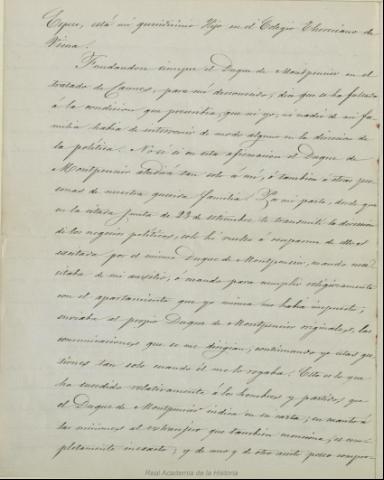 Espero, está mi queridísimo Hijo en el Colegio Theresiano de
Viena.
Fundandose siempre el Duque de Montpensier en el
tratado de Cannes, para mi desconocido, dice que se ha faltado
á la condicion que prescribia, que ni yo, ni nadie de mi fa-
milia habia de intervenir de modo alguno en la direccion de
la politica. No sé si en esta afirmacion el Duque de
Montpensier aludirá tan solo á mi, ó tambien á otras per-
sonas de nuestra querida familia. Por mi parte, desde que
en la citada Junta de 23 de setiembre le transmití la direccion
de los negocios politicos, solo he vuelto á ocuparme de ellos
escitada por el mismo Duque de Montpensier, cuando nece-
sitaba de mi ausilio; ó cuando para cumplir religiosamente
con el apartamiento que yo misma me habia impuesto,
enviaba al propio Duque de Montpensier originales, las
comunicaciones que se me dirigian; continuando yo estas ges-
tiones tan solo cuando él me lo rogaba. Esto es lo que
ha sucedido relativamente á los hombres y partidos que
el Duque de Montpensier indica en su carta; en cuanto á
las misiones al extranjero que tambien menciona, es com-
pletamente inexacto; y de uno y de otro aserto poseo compro-
Real Academia de la Historia